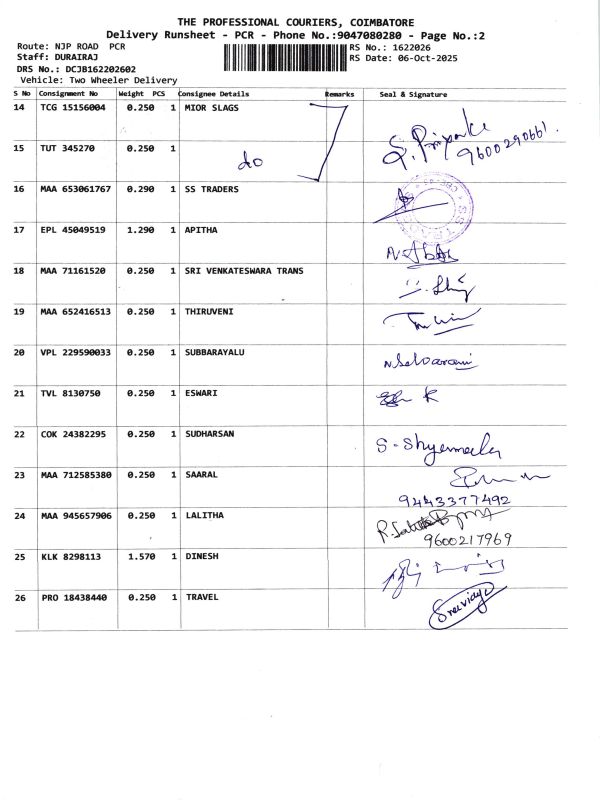 THE PROFESSIONAL COURIERS, COIMBATORE
Delivery Runsheet - PCR - Phone No.:9047080280 - Page No.:2
Route: NJP ROAD PCR
RS No.: 1622026
Staff: DURAIRAJ
RS Date: 06-Oct-2025
DRS No.: DCJB162202602
Vehicle: Two Wheeler Delivery
S No Consignment No Weight PCS Consignee Details Remarks Seal & Signature
14 TCG 15156004 0.250 1 MIOR SLAGS
S. Priyanka
9600290661.
15 TUT 345270 0.250 1 do
16 MAA 653061767 0.290 1 SS TRADERS
17 EPL 45049519 1.290 1 APITHA
18 MAA 71161520 0.250 1 SRI VENKATESWARA TRANS
19 MAA 652416513 0.250 1 THIRUVENI
20 VPL 229590033 0.250 1 SUBBARAYALU
N Selvarani
21 TVL 8130750 0.250 1 ESWARI
K
22 COK 24382295 0.250 1 SUDHARSAN
S. Shyamala
23 MAA 712585380 0.250 1 SAARAL
9443377492
24 MAA 945657906 0.250 1 LALITHA
9600217969
25 KLK 8298113 1.570 1 DINESH
26 PRO 18438440 0.250 1 TRAVEL
Srevidya